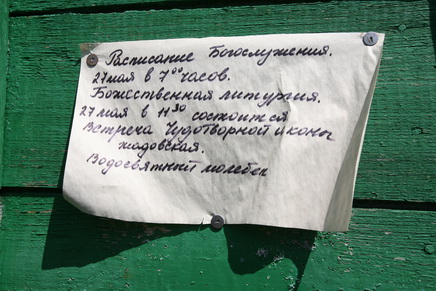 Расписание Богослужения.
27 мая в 7⁰⁰ часов.
Божественная литургия.
27 мая в 11³⁰ состоится
Встреча Чудотворной иконы
жадовская.
Водосвятный молебен